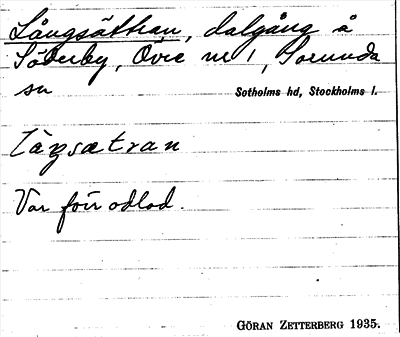 Långsättran, dalgång å
Söderby, Övre nr 1, Sorunda
sn Sotholms hd, Stockholms l.
låŋsætran
Var förr odlad.
GÖRAN ZETTERBERG 1935.